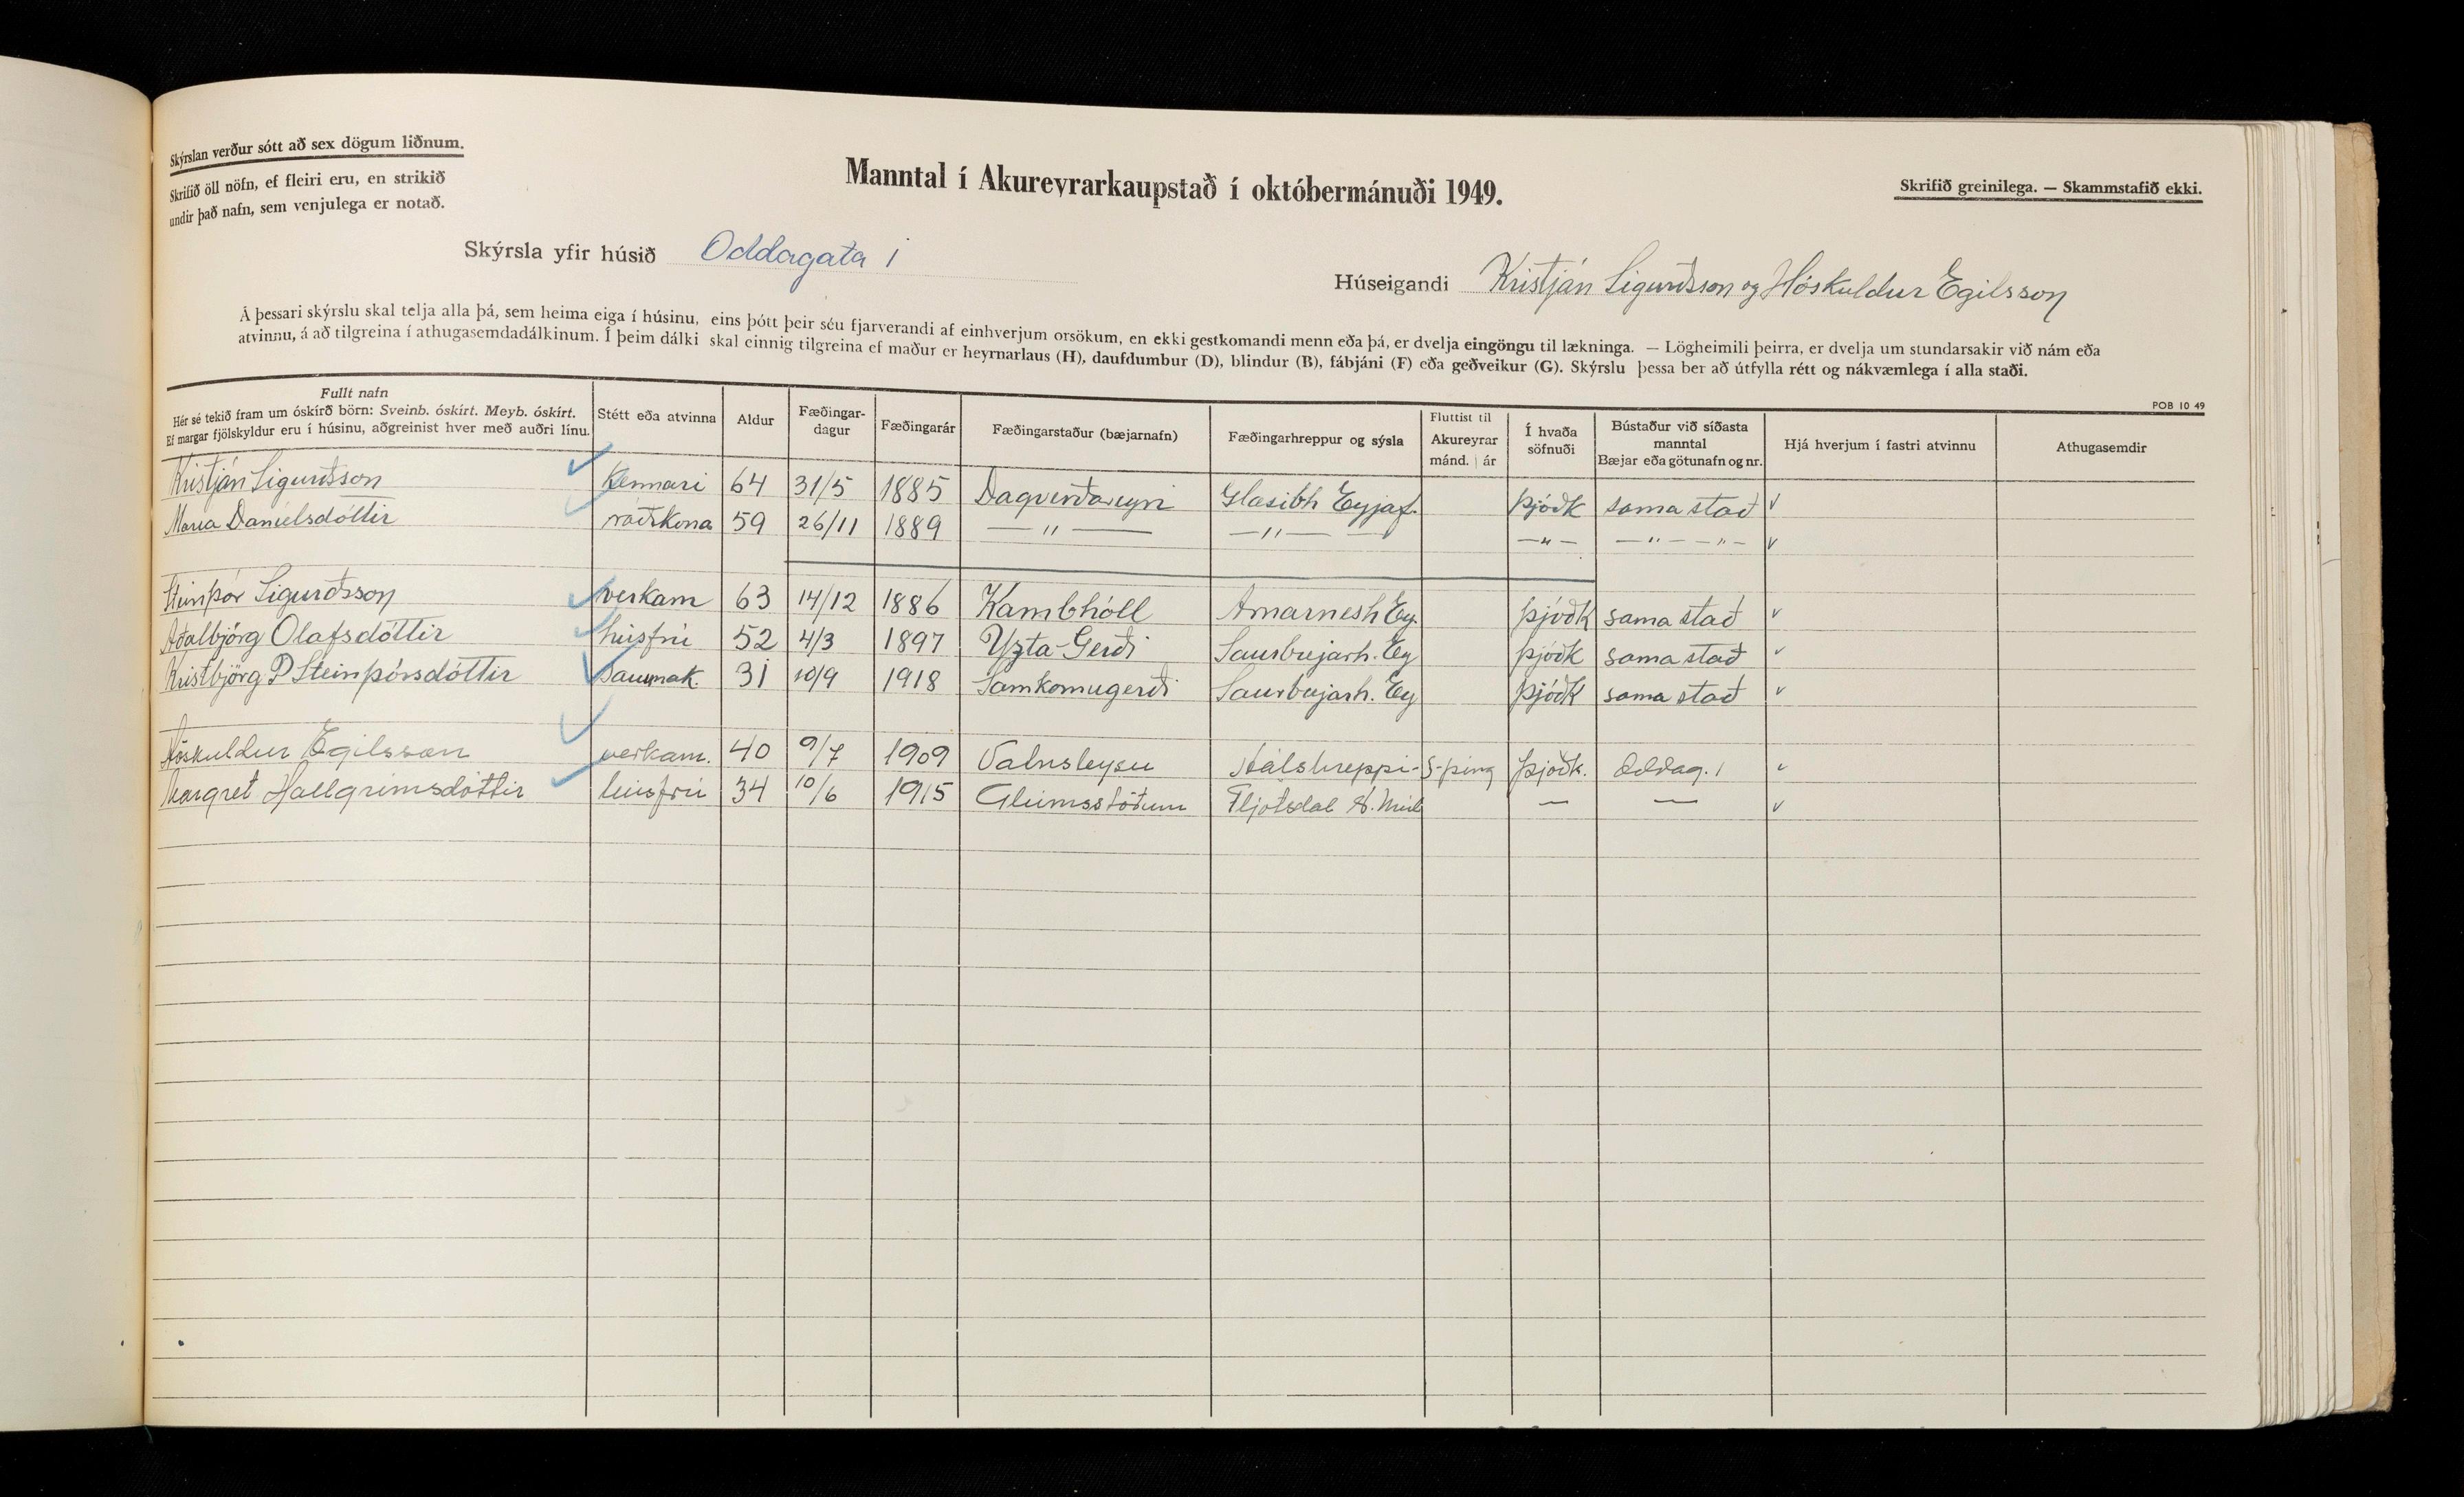 Skýrslan verður sótt að sex dögum liðnum.
Skrifið öll nöfn, ef fleiri eru, en strikið
undir það nafn, sem venjulega er notað.
Manntal í Akureyrarkaupstað í októbermánuði 1949.
Skrifið greinilega. — Skammstafið ekki.
Skýrsla yfir húsið Oddagata 1
Húseigandi Kristján Sigurðsson og Höskuldur Egilsson
Á þessari skýrslu skal telja alla þá, sem heima eiga í húsinu, eins þótt þeir séu fjarverandi af einhverjum orsökum, en ekki gestkomandi menn eða þá, er dvelja eingöngu til lækninga. — Lögheimili þeirra, er dvelja um stundarsakir við nám eða
atvinnu, á að tilgreina í athugasemdadálkinum. Í þeim dálki skal einnig tilgreina ef maður er heyrnarlaus (H), daufdumbur (D), blindur (B), fábjáni (F) eða geðveikur (G). Skýrslu þessa ber að útfylla rétt og nákvæmlega í alla staði.
POB 10 49
Fullt nafn
Hér sé tekið fram um óskírð börn: Sveinb. óskírt. Meyb. óskírt.
Ef margar fjölskyldur eru í húsinu, aðgreinist hver með auðri línu.
Stétt eða atvinna
Aldur
Fæðingar-
dagur
Fæðingarár
Fæðingarstaður (bæjarnafn)
Fæðingarhreppur og sýsla
Fluttist til
Akureyrar
mánd. ár
Í hvaða
söfnuði
Bústaður við síðasta
manntal
Bæjar eða götunafn og nr.
Hjá hverjum í fastri atvinnu
Athugasemdir
Kristján Sigurðsson kennari 64 31/5 1885 Dagverðareyri Glæsibh Eyjaf. þjóðk sama stað
María Daníelsdóttir ráðskona 59 26/11 1889 — " — — " — — " — — " — " —
Steinþór Sigurðsson verkam 63 14/12 1886 Kambhóll Arnarnesh Ey. þjóðk sama stað
Aðalbjörg Ólafsdóttir húsfrú 52 4/3 1897 Yzta-Gerði Saurbæjarh. Ey þjóðk sama stað
Kristbjörg P Steinþórsdóttir saumak 31 10/9 1918 Samkomugerði Saurbæjarh. Ey þjóðk sama stað
Höskuldur Egilsson verkam. 40 9/7 1909 Vatnsleysu Hálshreppi S-þing þjóðk. Oddag. 1
Margret Hallgrímsdóttir húsfrú 34 10/6 1915 Glúmsstöðum Fljótsdal N. Múl — —